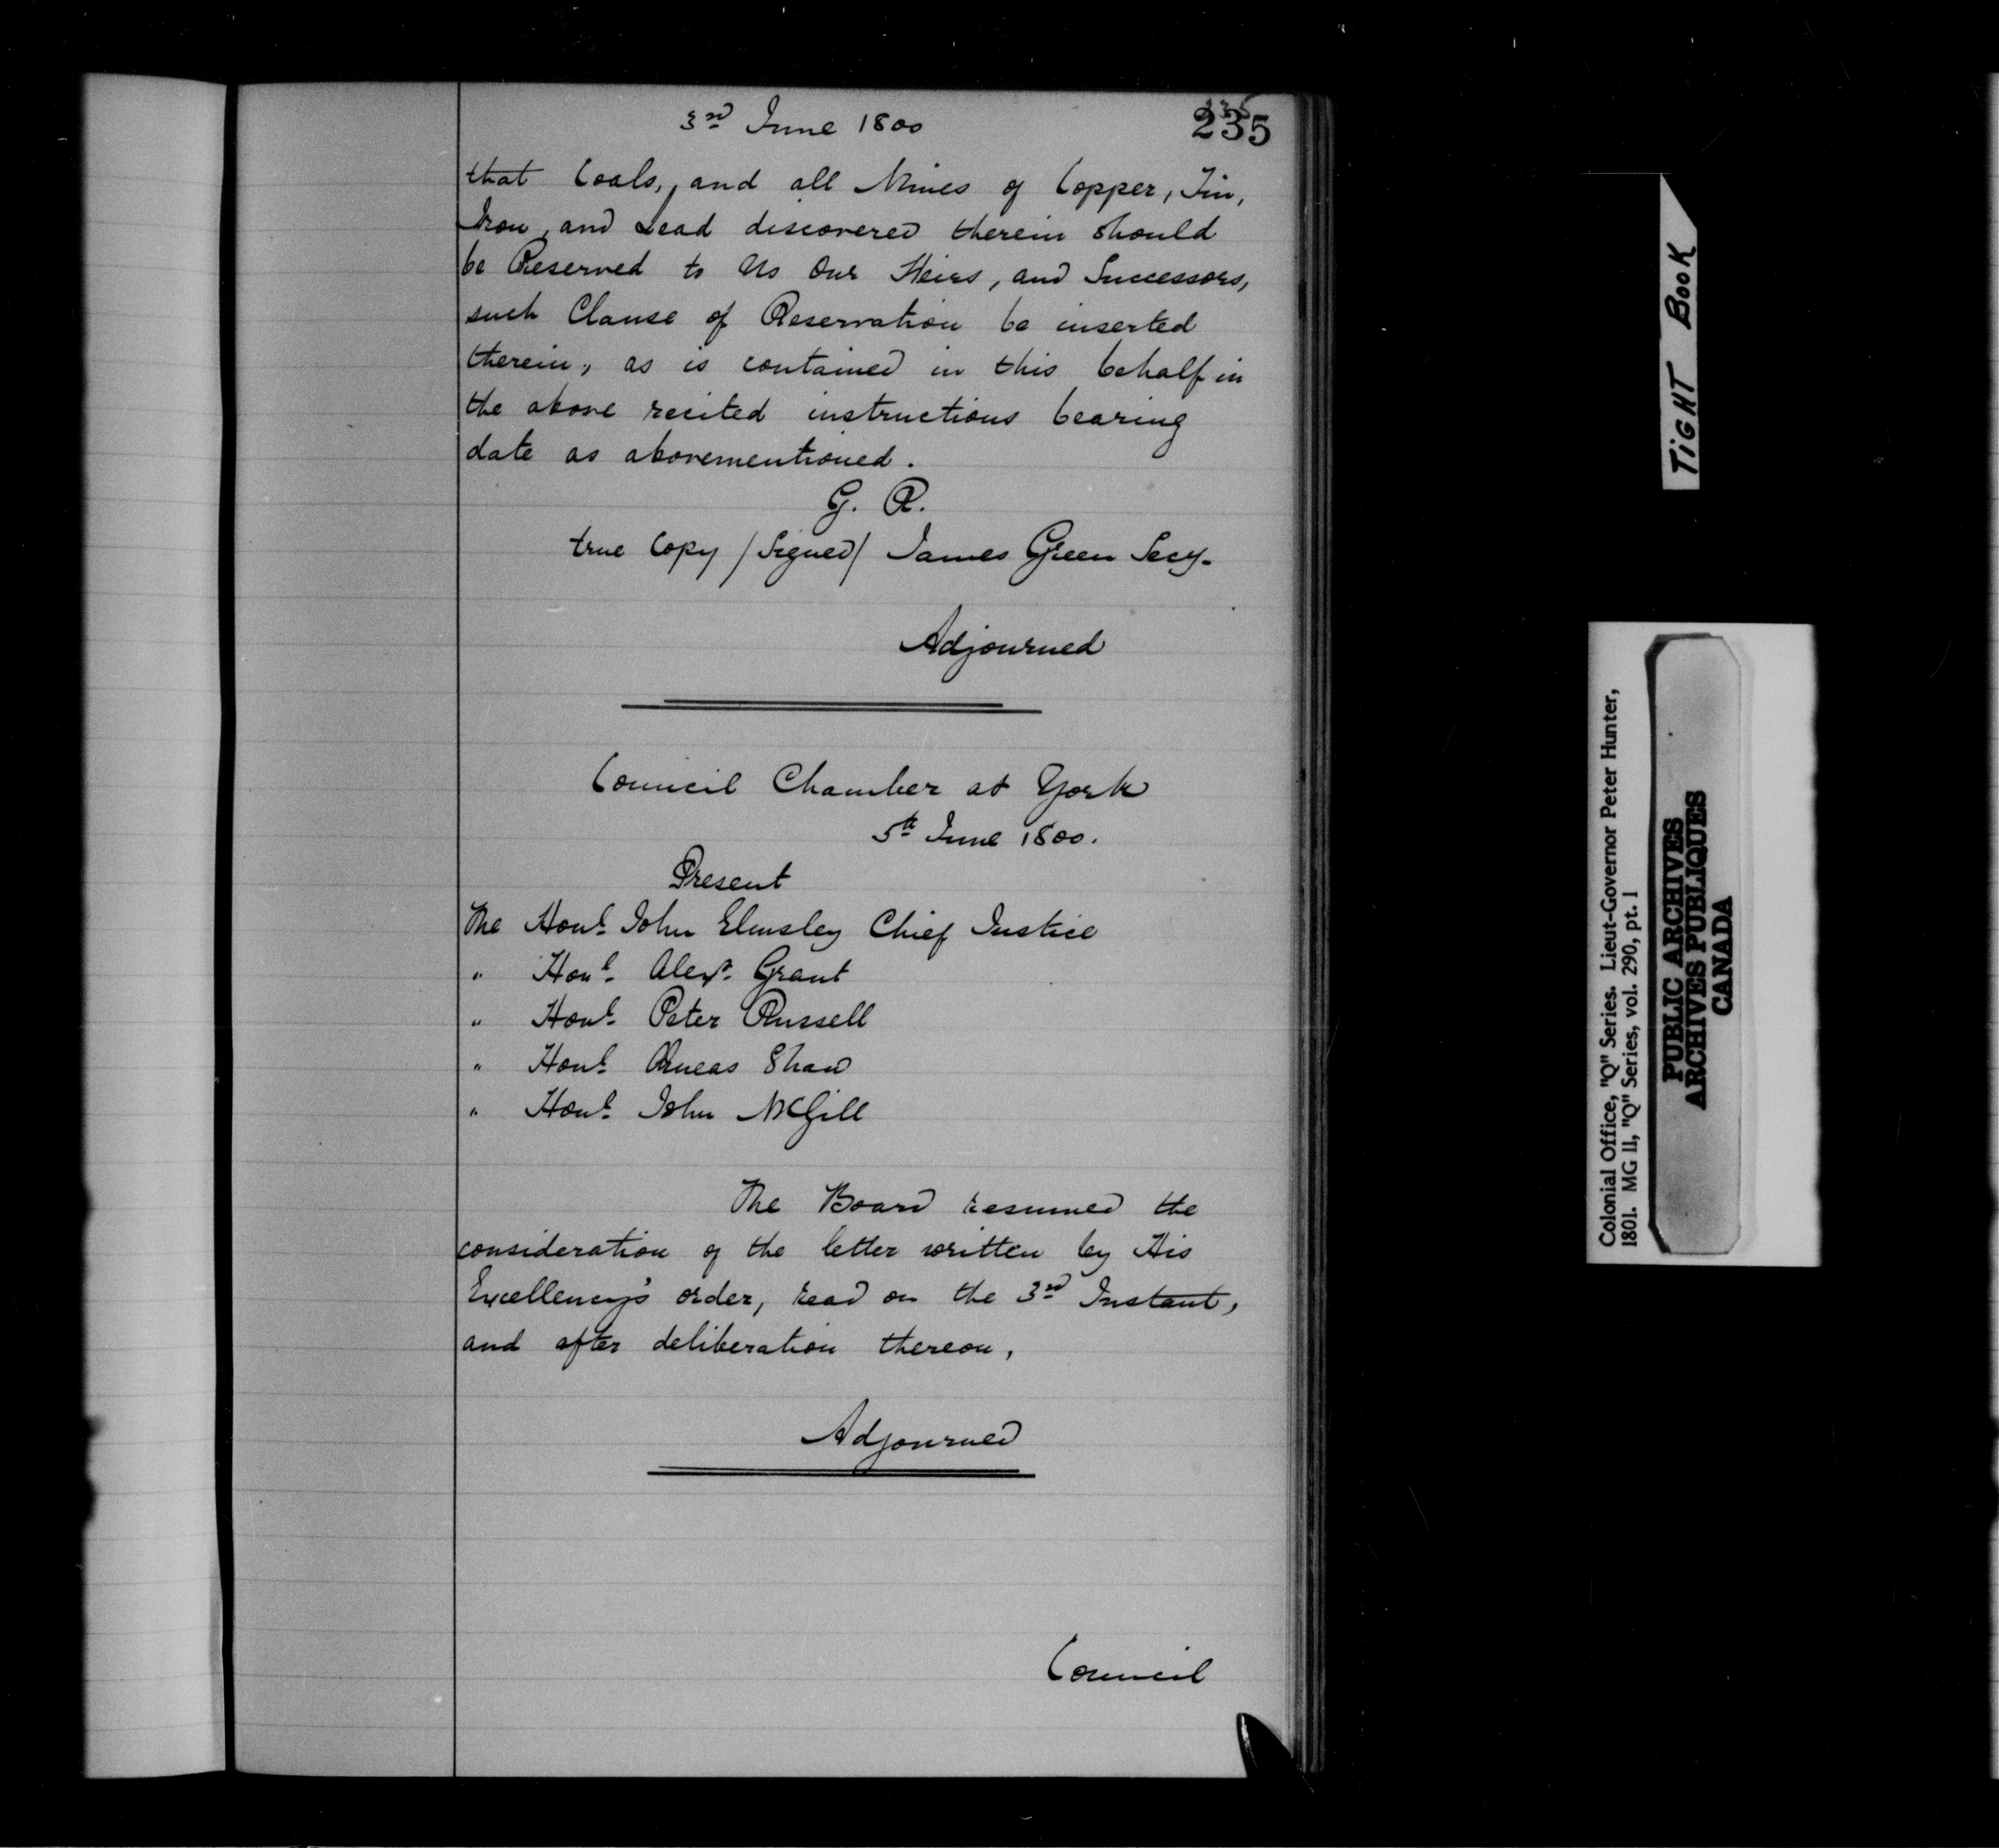 3rd June 1800
235
that Coals, and all Mines of Copper, Tin,
Iron, and Lead discovered therein should
be Reserved to Us Our Heirs, and Successors,
such Clause of Reservation be inserted
therein, as is contained in this behalf in
the above recited instructions bearing
date as abovementioned.
G. R.
true Copy /Signed/ James Green Secy.
Adjourned
Council Chamber at York
5th June 1800.
Present
The Honl. John Elmsley Chief Justice
" Honl. Alexr. Grant
" Honl. Peter Russell
" Honl. Æneas Shaw
" Honl. John McGill
The Board resumed the
consideration of the letter written by His
Excellency's order, read on the 3rd Instant,
and after deliberation thereon,
Adjourned
Council
TiGHT BooK
Colonial Office, "Q" Series. Lieut-Governor Peter Hunter,
1801. MG 11, "Q" Series, vol. 290, pt. 1
PUBLIC ARCHIVES
ARCHIVES PUBLIQUES
CANADA